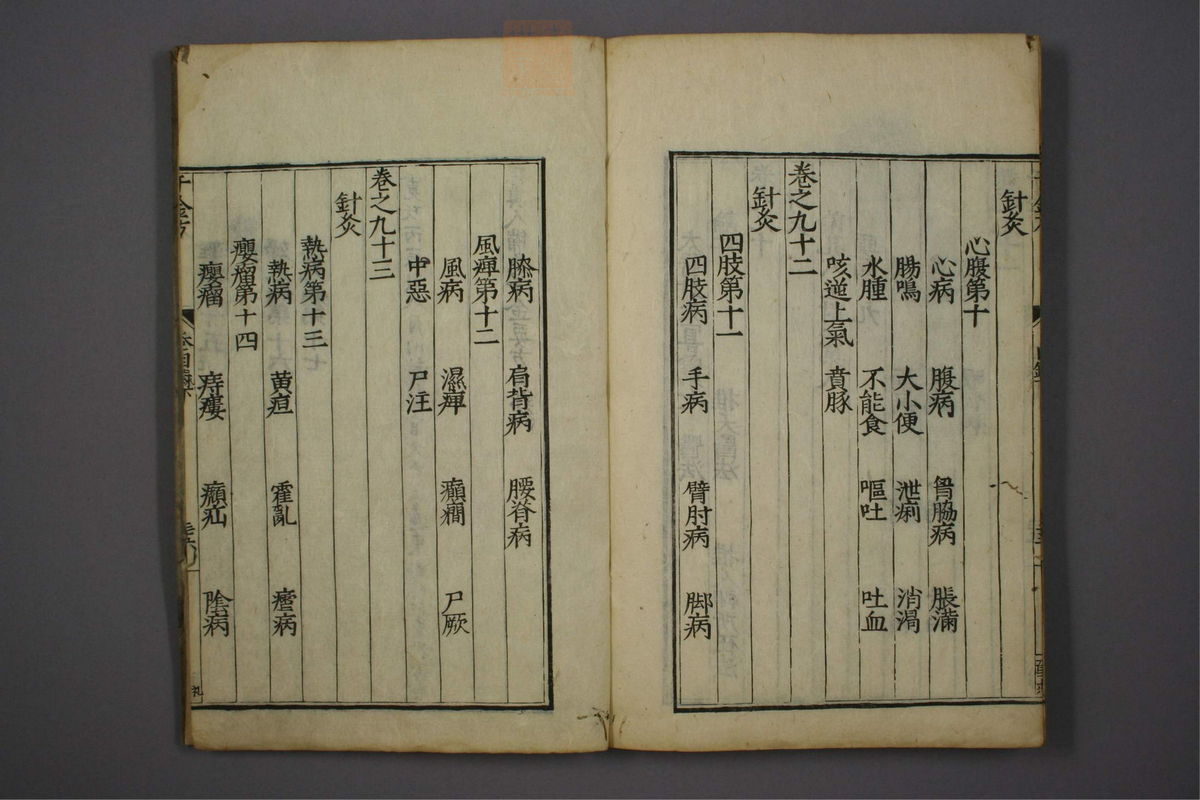 針灸
心腹第十
心病 腹病 胷脇病 脹滿
腸鳴 大小便 泄痢 消渴
水腫 不能食 嘔吐 吐血
咳逆上氣 賁豚
卷之九十二
針灸
四肢第十一
四肢病 手病 臂肘病 脚病
膝病 肩背病 腰脊病
風痺第十二
風病 濕痺 癲癎 尸厥
中惡 尸注
卷之九十三
針灸
熱病第十三
熱病 黄疸 霍亂 瘧病
癭瘤第十四
癭瘤 痔瘻 㿗疝 陰病